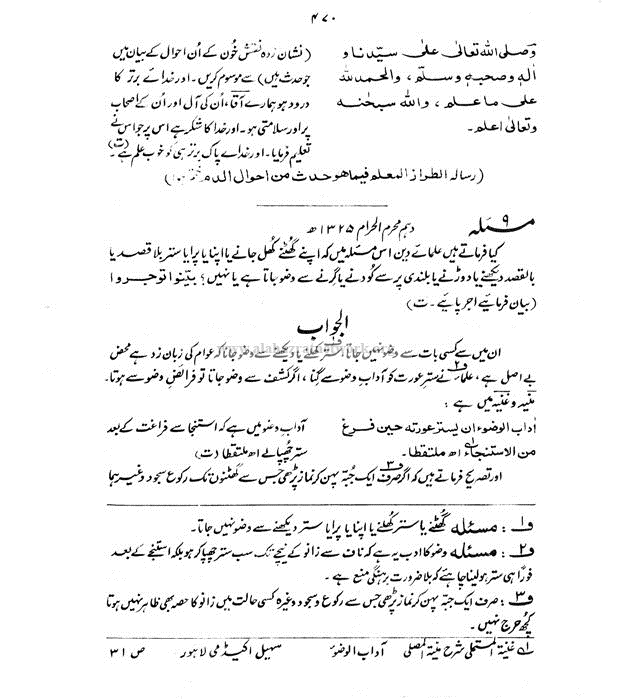 ۴۷۰
وَصلی اللہ تعالٰی علٰی سیّدنا و
اٰلہٖ وصحبہٖ وسلّم، والحمدللہ
علی ما علم، واللہ سبحٰنہ
وتعالٰی اعلم۔
(نشان زدہ نقش خُون کے اُن احوال کے بیان میں
جو حدث ہیں) سے موسوم کریں۔ اور خدائے برتر کا
درود ہو ہمارے آقا، اُن کی آل اور اُن کے اصحاب
پر اور سلامتی ہو۔ اور خدا کا شکر ہے اس پر جو اس نے
تعلیم فرمایا۔ اور خدائے پاک برتر ہی کو خوب علم ہے۔ (ت)
(رسالہ الطراز المعلم فیما ھو حدث من احوال الدم ختم ہوا)
مسئلہ ۹ دہم محرم الحرام ۱۳۲۵ ھ
کیا فرماتے ہیں علمائے دین اس مسئلہ میں کہ اپنے گھُٹنے کھُل جانے یا اپنا یا پرایا ستر بلا قصد یا
بالقصد دیکھنے یا دوڑنے یا بلندی پر سے کُودنے یا گرنے سے وضو جاتا ہے یا نہیں؟ بیّنوا توجروا
(بیان فرمائیے اجر پائیے ۔ ت)
الجواب
ان میں سے کسی بات سے وضو نہیں جاتا، ف۱ ستر کھلنے یا دیکھنے سے وضو جانا کہ عوام کی زبان زد ہے محض
بے اصل ہے، علماء ف۲ نے سترِ عورت کو آدابِ وضو سے گِنا، اگر کشف سے وضو جاتا تو فرائضِ وضو سے ہوتا۔
منیہ وغنیہ میں ہے :
اٰداب الوضوء ان یستر عورتہ حین فرغ
من الاستنجاء اھ ملتقطا۔
آدابِ وضو میں ہے کہ استنجا سے فراغت کے بعد
ستر چُھپالے اھ ملتقطا (ت)
اور تصریح فرماتے ہیں کہ اگر صرف ف۳ ایک جُبّہ پہن کر نماز پڑھی جس سے گھٹنوں تک رکوع سجود وغیرہما
ف۱ : مسئلہ گھُٹنے یا ستر کھُلنے یا اپنا یا پرایا ستر دیکھنے سے وضو نہیں جاتا۔
ف۲ : مسئلہ وضو کا ادب یہ ہے کہ ناف سے زانو کے نیچے تک سب ستر چھپا کر ہو بلکہ استنجے کے بعد
فورًا ہی ستر ہو لینا چاہئے کہ بلا ضرورت برہنگی منع ہے ۔
ف۳ : صرف ایک جُبّہ پہن کر نماز پڑھی جس سے رکوع و سجود وغیرہ کسی حالت میں زانو کا حصہ بھی ظاہر نہیں ہوتا
کچُھ حرج نہیں ۔
۱؎ غنیۃ المستملی شرح منیۃ المصلی آداب الوضوء سہیل اکیڈمی لاہور ص ۳۱